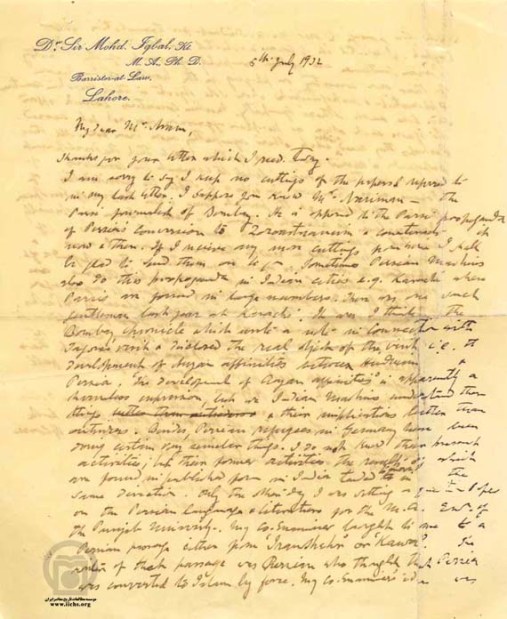 Dr. Sir Mohd. Iqbal, Kt.
M.A., Ph.D.
Barrister-at-Law.
Lahore.
5th July 1932
My dear Mr.
Thanks for your letter which I recd. today.
I am sorry to say I keep no cuttings of the proposal referred to
in my last letter. I suppose you know Mr. Nariman — the
Parsi journalist of Bombay. He is opposed to the Parsi propaganda
of Persia's conversion to Zoroastrianism &
now & then. If I receive any more cuttings I shall
be glad to send them on to you. Sometimes Persian Muslims
also do this propaganda in Indian cities e.g. Karachi where
Parsis are found in large numbers. There was one such
gentleman last year at Karachi. It was I think the
Bombay Chronicle which wrote a note in connection with
Tagore's visit & disclosed the real object of the visit i.e. the
development of Aryan affinities between &
Persia. The development of Aryan affinities is apparently a
harmless expression, but we Indian Muslims understand these
things & their implications better than
outsiders. Besides, Persian refugees in Germany have been
doing certain very similar things. I do not know their present
activities; but their former activities the results of which
are found in published form in India tended to the
same direction. Only the other day I was setting a paper
on the Persian language & literature for the M.A. Exn. of
the Punjab University. My co-Examiner brought to me a
Persian passage either from "Iranshehr" or "Kaweh". The
writer of that passage was Persian who thought that Persia
was converted to Islam by force. My co-Examiner's idea was
www.iichs.org